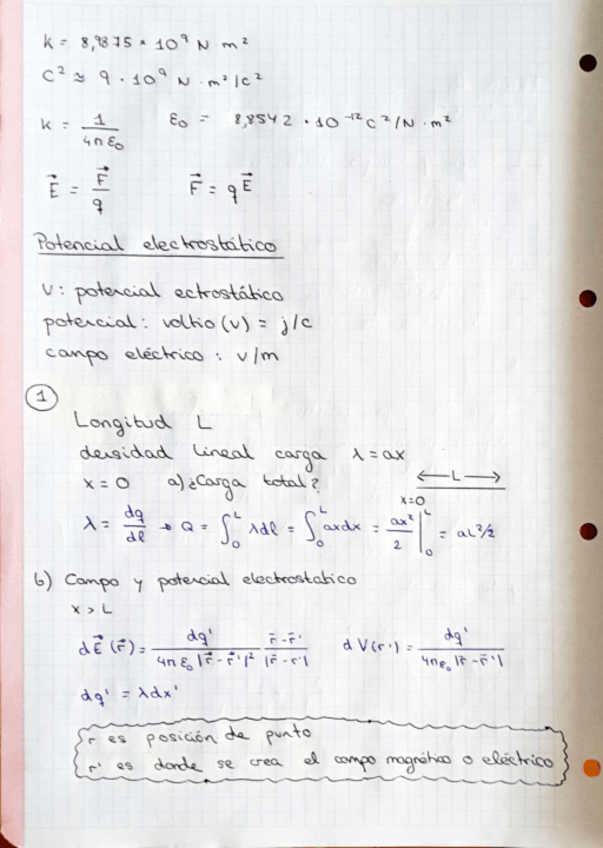 k = 8,9875 * 10⁹ N · m²
C² ≈ 9 · 10⁹ N · m²/C²
k = 1/4πε₀   ε₀ = 8,8542 · 10⁻¹² C²/N · m²
E⃗ = F⃗/q   F⃗ = qE⃗
Potencial electrostático
V: potencial ectrostático
potencial: voltio (v) = j/c
campo eléctrico: v/m
1
Longitud L
densidad lineal carga λ = ax
x = 0   a) ¿Carga total?
← L →
x=0
λ = dq/dl → Q = ∫₀ᴸ λdl = ∫₀ᴸ axdx = ax²/2 |₀ᴸ = aL²/2
b) Campo y potencial electrostatico
x > L
dE⃗ (r⃗) = dq'/4πε₀|r⃗-r⃗'|² r̄-r̄'/|r̄-r'|   dV(r') = dq'/4πε₀|r̄-r̄'|
dq' = λdx'
r es posición de punto
r' es donde se crea el campo magnético o eléctrico